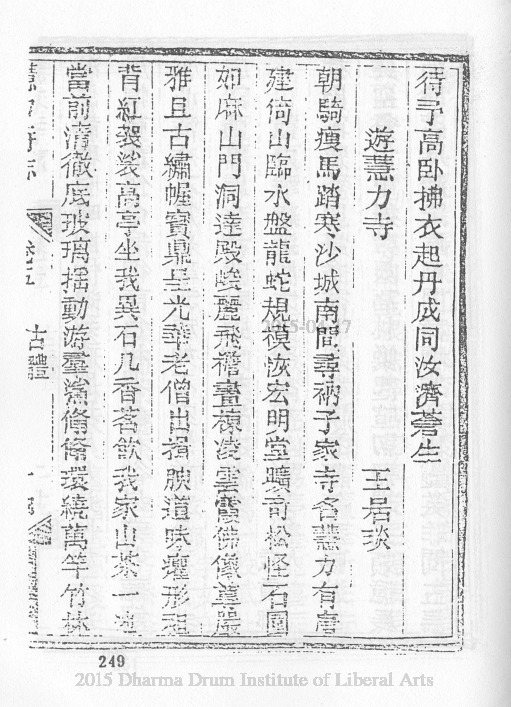 待予高卧拂衣起丹成同汝濟蒼生
遊慧力寺 王居琰
朝騎瘦馬踏寒沙城南間尋衲子家寺名慧力有唐
建倚山臨水盤龍蛇規模恢宏明堂曠奇松怪石圍
如麻山門洞達殿峻麗飛檐畫棟凌雲霞佛像莊嚴
雅且古繡幄寶鼎呈光華老僧出揖腴道味壞形祖
背紅袈裟高亭坐我異石几香茗飲我家山茶一池
當前清徹底玻璃揺動游羣鯊翛翛環繞萬竿竹林
卷五 古體
249
2015 Dharma Drum Institute of Liberal Arts